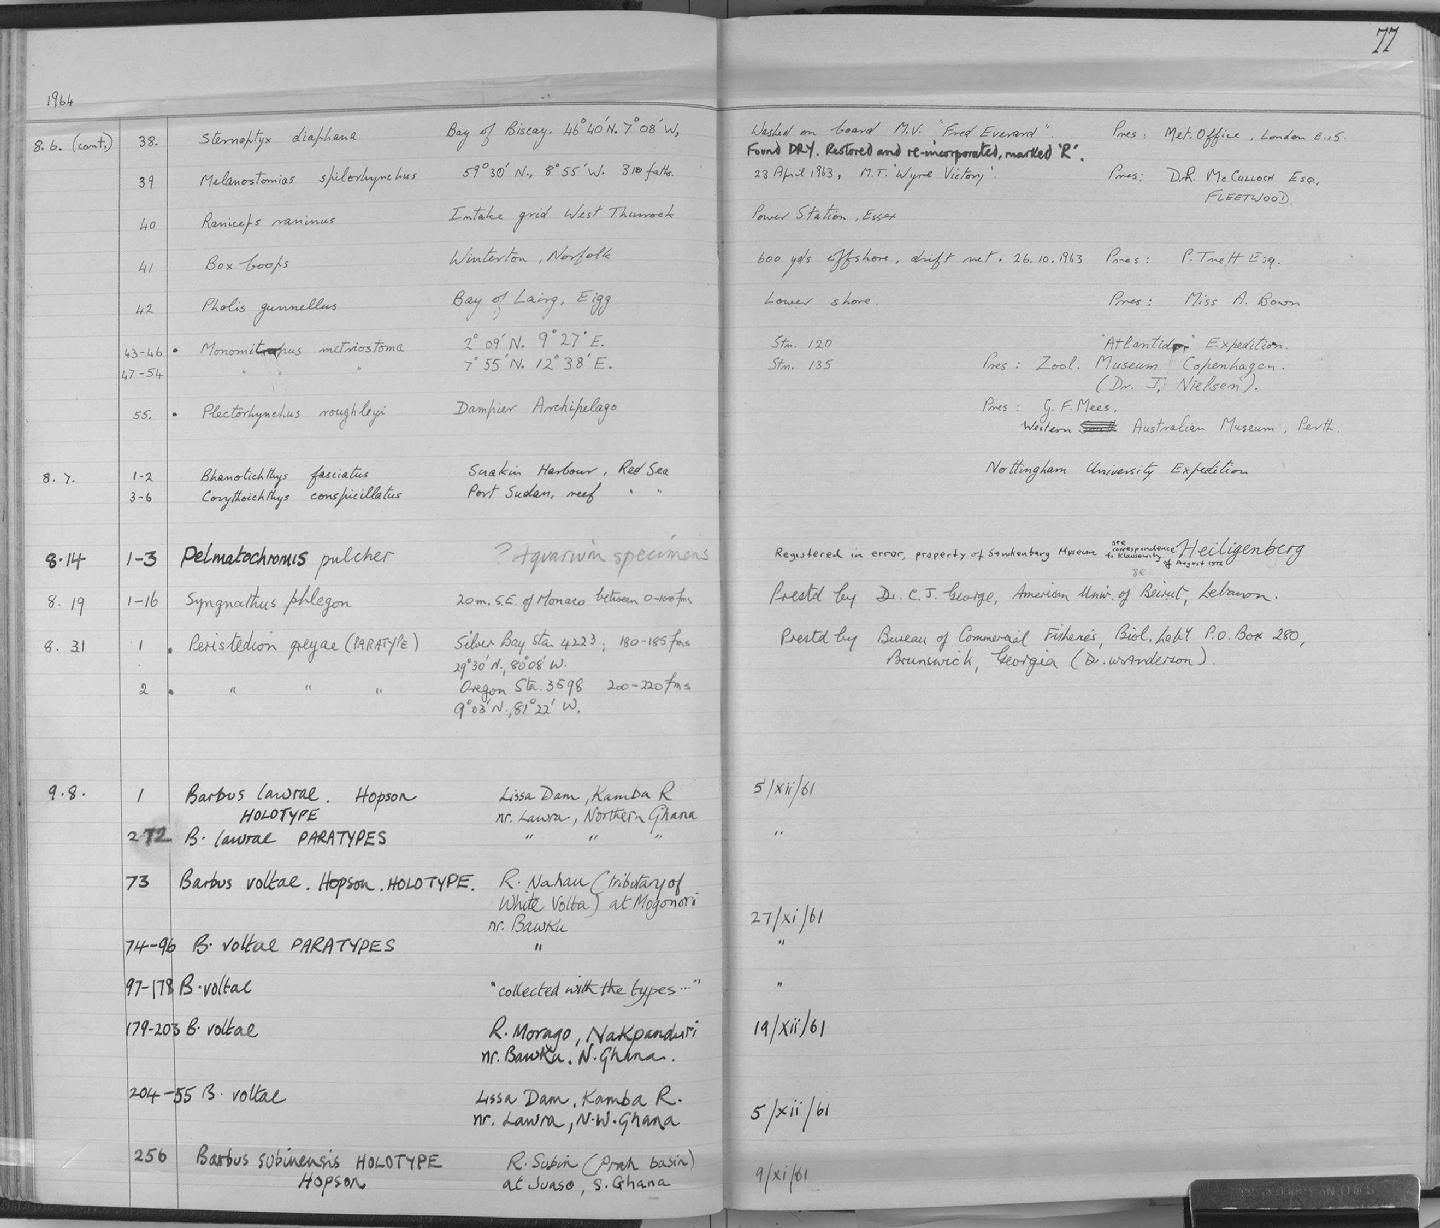 77
1964
8.6. (cont.) 38. Sternoptyx diaphana Bay of Biscay. 46°40'N. 7°08'W, Washed on board M.V. "Fred Everard". Pres: Met. Office, London E.15.
Found DRY. Restored and re-incorporated, marked 'R'.
39 Melanostomias spilorhynchus 59°30'N., 8°55'W. 310 faths. 23 April 1963, M.T. 'Wyre Victory'. Pres: D.R. McCulloch Esq,
FLEETWOOD.
40 Raniceps raninus Intake grid West Thurrock Power Station, Essex
41 Box boops Winterton, Norfolk 600 yds offshore, drift net. 26.10.1963 Pres: P. Trett Esq.
42 Pholis gunnellus Bay of Laing, Eigg Lower shore. Pres: Miss A. Bown
43-46 • Monomitopus metriostoma 2°09'N. 9°27'E. Stn. 120 "Atlantide" Expedition.
47-54 " " " 7°55'N. 12°38'E. Stn. 135 Pres: Zool. Museum Copenhagen.
(Dr. J. Nielsen).
55. • Plectorhynchus roughleyi Dampier Archipelago Pres: G.F. Mees.
Western Australian Museum, Perth.
8.7. 1-2 Bhanotichthys fasciatus Suakin Harbour, Red Sea Nottingham University Expedition
3-6 Corythoichthys conspicillatus Port Sudan, reef " "
8.14 1-3 Pelmatochromis pulcher ? Aquarium specimens Registered in error, property of Senckenberg Museum see correspondence to Klausewitz of August 1972 Heiligenberg
8.19 1-16 Syngnathus phlegon 20m. S.E. of Monaco between 0-100 fms Prestd by Dr. C.J. George, American Univ. of Beirut, Lebanon.
8.31 1 • Peristedion greyae (PARATYPE) Silver Bay Sta. 4223; 180-185 fms Prestd by Bureau of Commercial Fisheries, Biol. Laby P.O. Box 280,
29°30'N, 80°08'W. Brunswick, Georgia (Dr. W. Anderson).
2 • " " " Oregon Sta. 3598 200-220 fms
9°03'N., 81°22'W.
9.8. 1 Barbus lawrae. Hopson Lissa Dam, Kamba R 5/xii/61
HOLOTYPE nr. Lawra, Northern Ghana
2-72 B. lawrae PARATYPES " " " "
73 Barbus voltae. Hopson. HOLOTYPE. R. Nahau (tributary of
White Volta) at Mogonori 27/xi/61
nr. Bawku
74-96 B. voltae PARATYPES " "
97-178 B. voltae "collected with the types..." "
179-203 B. voltae R. Morago, Nakpanduri 19/xii/61
nr. Bawku, N. Ghana.
204-55 B. voltae Lissa Dam, Kamba R. 5/xii/61
nr. Lawra, N.W. Ghana
256 Barbus subinensis HOLOTYPE R. Subin (Prah basin) 9/xi/61
Hopson at Juaso, S. Ghana